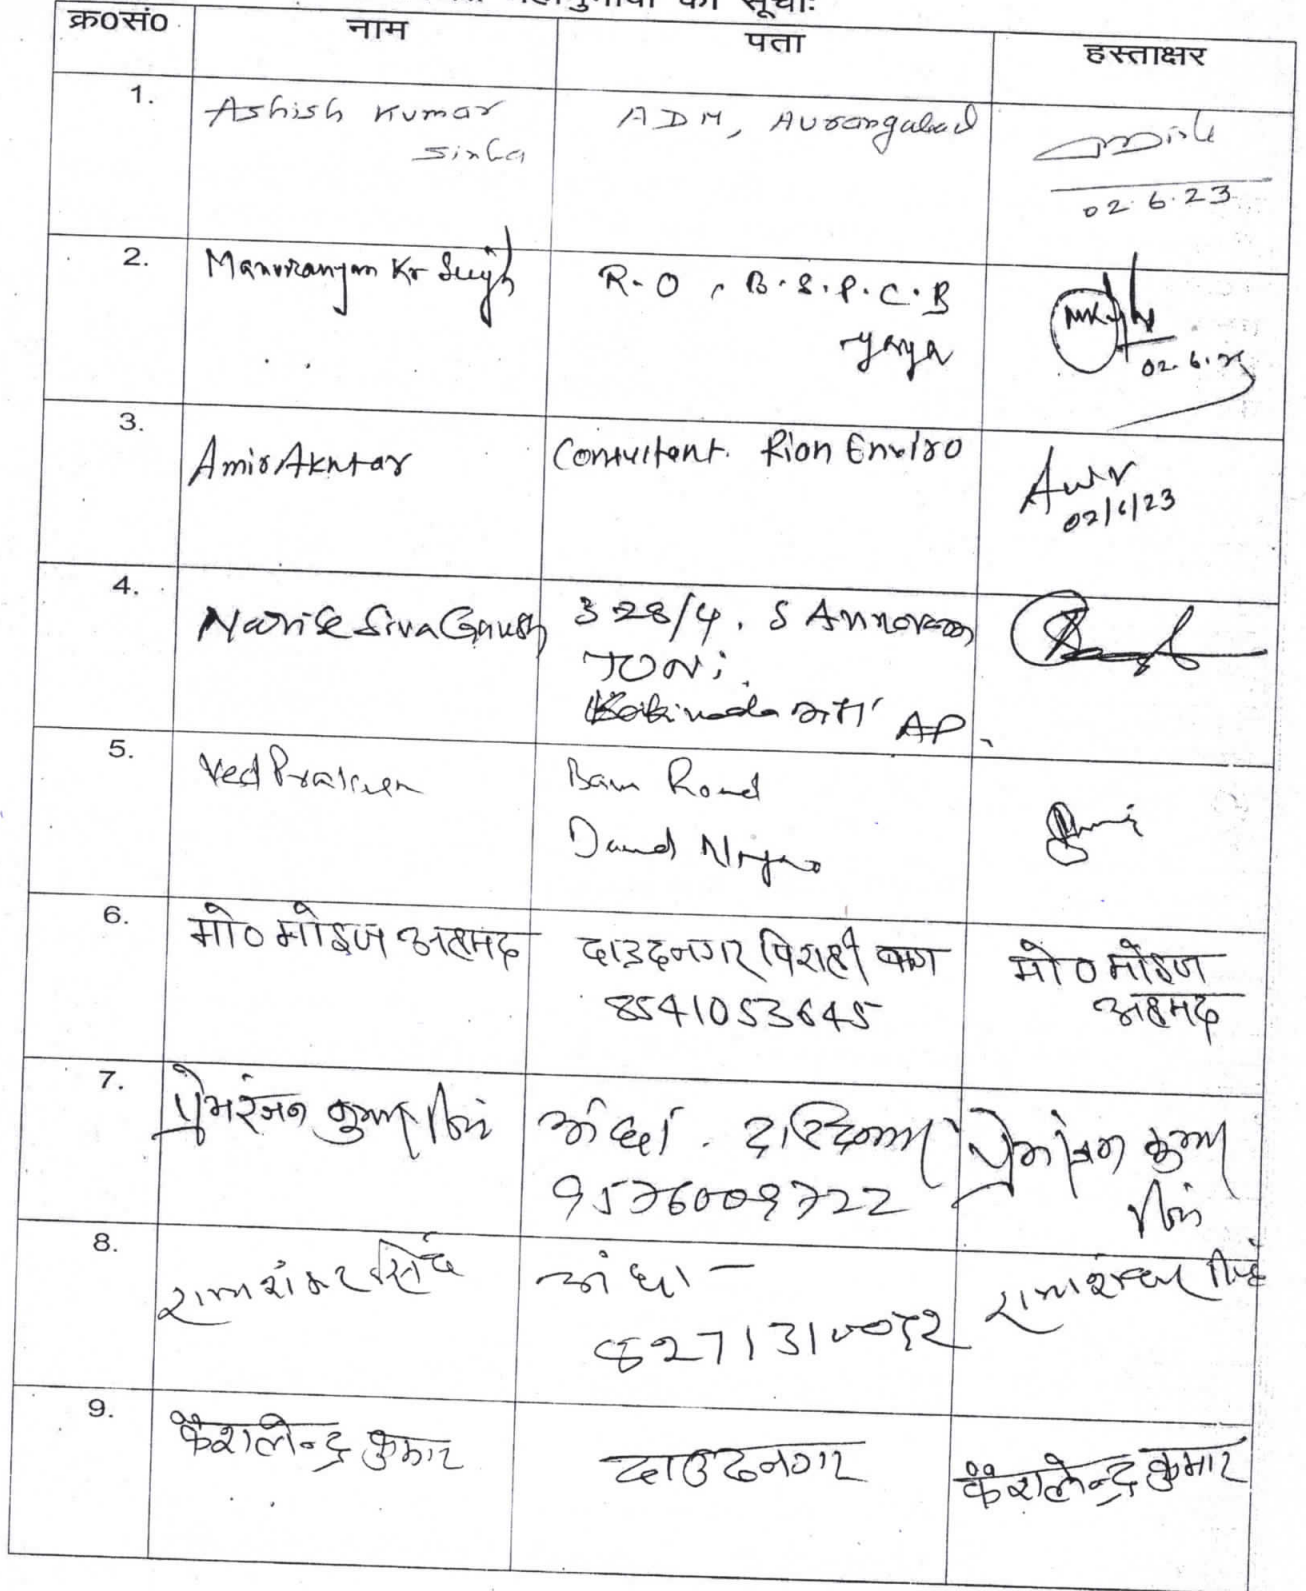 की सूचीः
क्र०सं० नाम पता हस्ताक्षर
1. Ashish Kumar Sinha ADM, Aurangabad
02.6.23
2. Manoranjan Kr Singh R.O, B.S.P.C.B
Gaya
02.6.23
3. Amir Akhtar Consultant. Rion Enviro
02/6/23
4. Siva Ganesh 328/4, S Annavaram
Kakinada AP.
5. Ved Prakash Road
Daud Nagar
6. मो० मोइज अहमद दाउदनगर पिराही बाग मो० मोइज
8541053645 अहमद
7. प्रेमरंजन कुमार प्रेमरंजन कुमार
9576009722
8. रामशंकर सिंह अंछा - रामशंकर सिंह
9. कैशलेन्द्र कुमार दाउदनगर कैशलेन्द्र कुमार